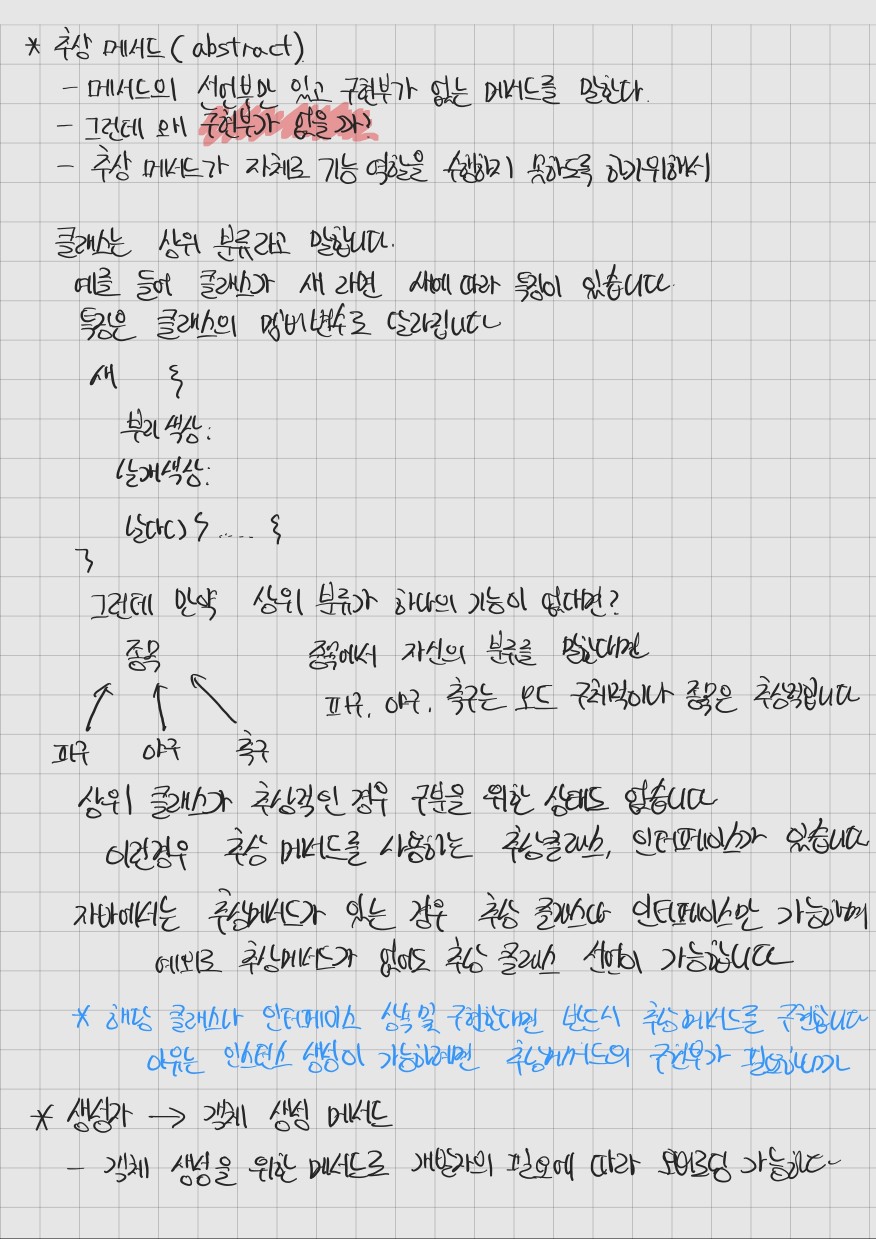 * 추상 메서드 (abstract)
- 메서드의 선언부만 있고 구현부가 없는 메서드를 말한다.
- 그런데 왜 구현부가 없을까?
- 추상 메서드가 자체로 기능 역할을 수행하지 못하도록 하기위해서
클래스는 상위 분류라고 말합니다.
예를 들어 클래스가 새 라면 새에 따라 특징이 있습니다.
특징은 클래스의 멤버변수로 달라집니다
새 {
부리색상:
날개색상:
날다() { ..... {
}
그런데 만약 상위 분류가 하나의 기능이 없다면?
종목 종목에서 자신의 분류를 말한다면
피구, 야구, 축구는 모드 구체적이나 종목은 추상적입니다
피구 야구 축구
상위 클래스가 추상적인 경우 구분을 위한 상태도 없습니다
이런경우 추상 메서드를 사용하는 추상클래스, 인터페이스가 있습니다
자바에서는 추상메서드가 있는 경우 추상 클래스나 인터페이스만 가능하며
예외로 추상메서드가 없어도 추상 클래스 선언이 가능합니다
* 해당 클래스나 인터페이스 상속 및 구현한다면 반드시 추상메서드를 구현합니다
이유는 인스턴스 생성이 가능하려면 추상메서드의 구현부가 필요하니까
* 생성자 → 객체 생성 메서드
- 객체 생성을 위한 메서드로 개발자의 필요에 따라 오버로딩 가능하다